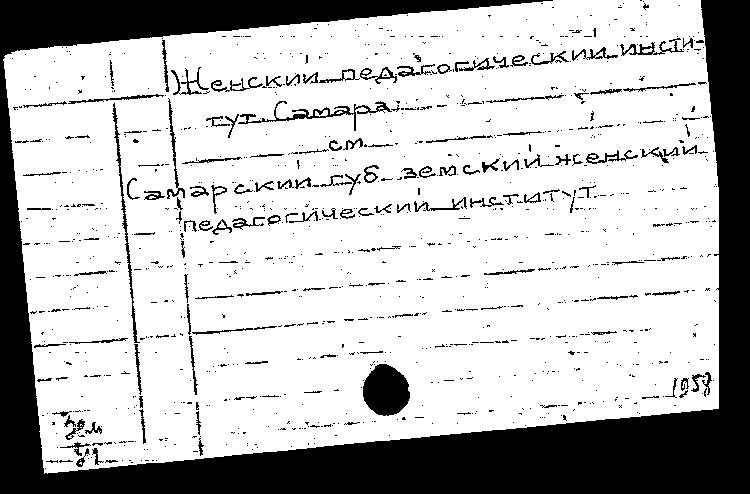 Женский педагогический инсти-
тут. Самара.
см.
Самарский губ. земский женский
педагогический институт.
1958